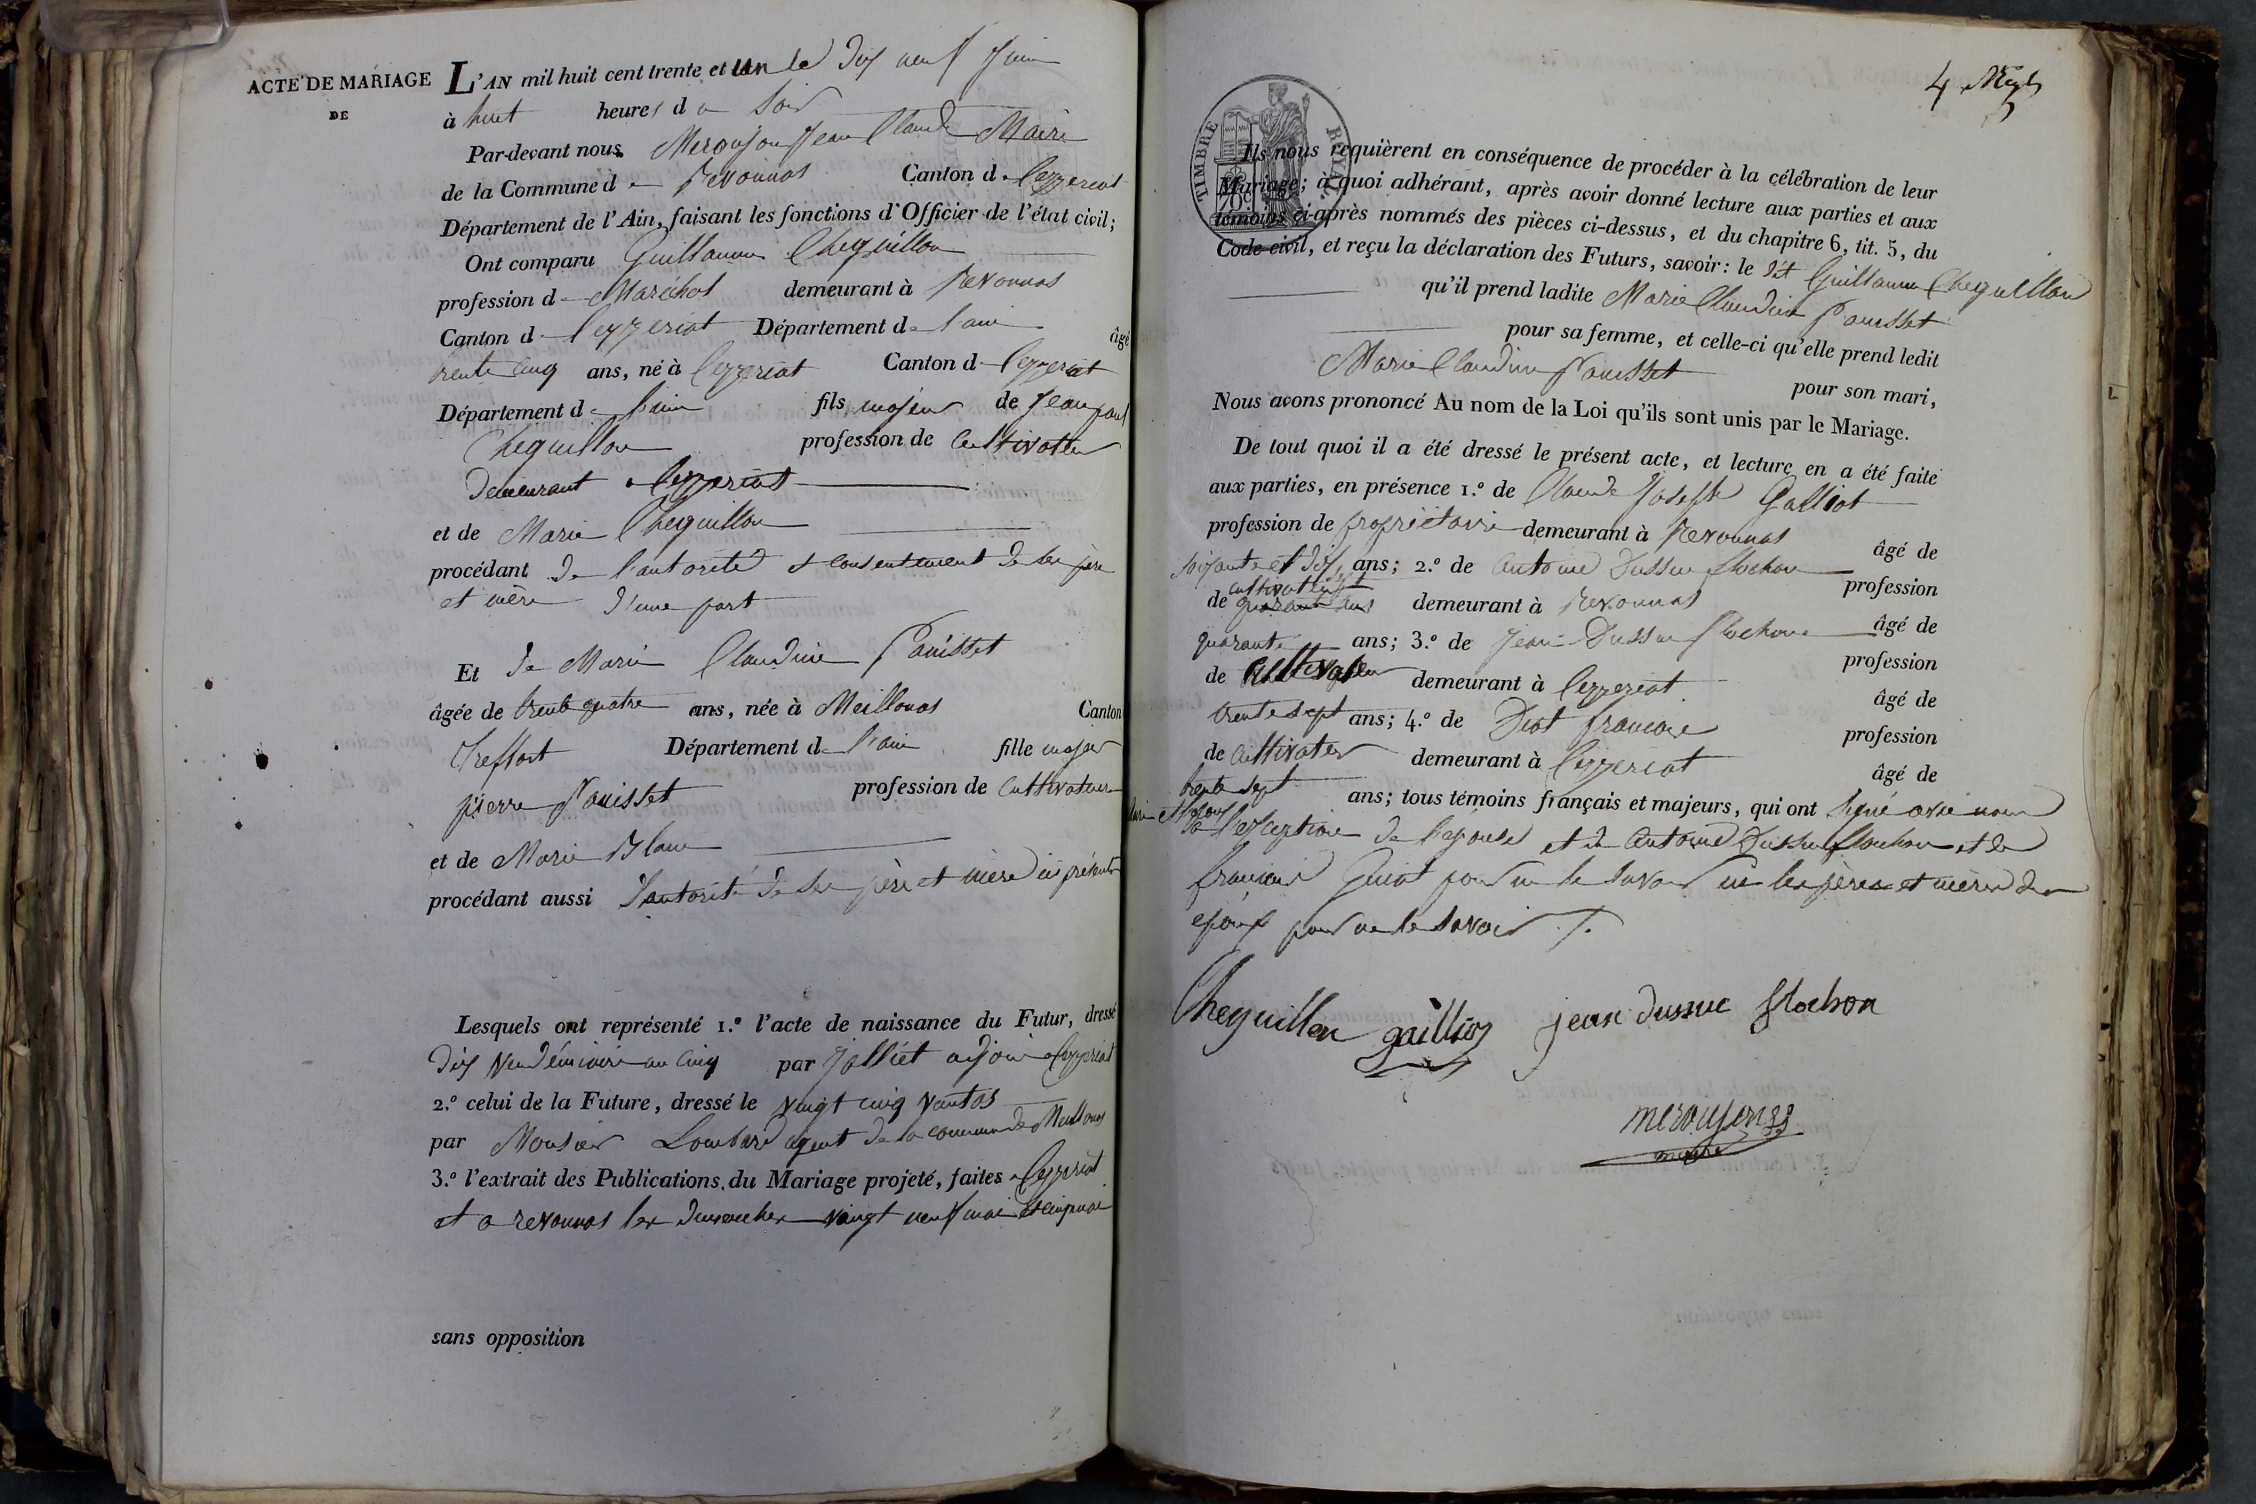 ACTE DE MARIAGE
DE
L'AN mil huit cent trente et un le dix neuf Juin
à huit heures du Soir
Par-devant nous Jean Claude Maire
de la Commune de Revonnas Canton de Ceyzeriat
Département de l'Ain, faisant les fonctions d'Officier de l'état civil;
Ont comparu Guillaume Cheguillon
profession de Maréchal demeurant à Revonnas
Canton de Ceyzeriat Département de l'ain âgé
trente cinq ans, né à Ceyzeriat Canton de Ceyzeriat
Département de l'ain fils majeur de Jean paul
Cheguillon profession de Cultivateur
demeurant a Ceyzeriat
et de Marie Cheguillon
procédant de l'autorité et consentement de ses père
et mère d'une part
Et de Marie Claudine Pauisset
âgée de trente quatre ans, née à Meillonas Canton
Treffort Département de l'ain fille majeur
pierre Pauisset profession de Cultivateur
et de Marie Blanc
procédant aussi d'autorité de ses père et mère ici présents
Lesquels ont représenté 1.º l'acte de naissance du Futur, dressé
dix Vendémiaire an Cinq par Jolliet adjoin Ceyzeriat
2.º celui de la Future, dressé le vingt cinq vantos
par Monsieur Lombard agent de la commune de Meillonas
3.º l'extrait des Publications du Mariage projeté, faites a Ceyzeriat
et a revonnas les dimanches vingt neuf mai et cinq
sans opposition
4
TIMBRE ROYAL
70c
Ils nous requièrent en conséquence de procéder à la célébration de leur
Mariage; à quoi adhérant, après avoir donné lecture aux parties et aux
témoins ci-après nommés des pièces ci-dessus, et du chapitre 6, tit. 5, du
Code civil, et reçu la déclaration des Futurs, savoir: le dit Guillaume Cheguillon
qu'il prend ladite Marie Claudine Pauisset
pour sa femme, et celle-ci qu'elle prend ledit
Marie Claudine Pauisset pour son mari,
Nous avons prononcé Au nom de la Loi qu'ils sont unis par le Mariage.
De tout quoi il a été dressé le présent acte, et lecture en a été faite
aux parties, en présence 1.º de Claude Joseph Galliot
profession de propriétaire demeurant à Revonnas âgé de
soixante et dix ans; 2.º de Antoine Dussuc flochon profession
cultivateur
de quarante ans demeurant à Revonnas âgé de
quarante ans; 3.º de Jean Dussuc flochon profession
de Cultivateur demeurant à Ceyzeriat âgé de
trente sept ans; 4.º de francois profession
de Cultivateur demeurant à Ceyzeriat âgé de
trente sept ans; tous témoins français et majeurs, qui ont Signé avec nous
a l'exeption de l'epouse et de Antoine Dussuc flochon et de
francois pour ne le Savoir ni les pères et mères des
epoux pour ne le savoir
Cheguillon gaillioz jean dussuc flochon
merougeon
maire